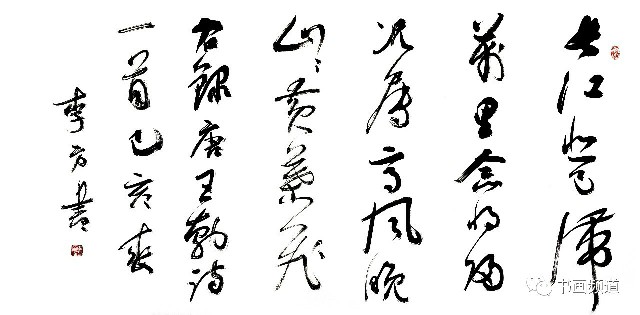 长江悲已滞
萬里念将归
况属高风晚
山山黄葉飞
右録唐王勃诗
一首己亥
李方書
书画频道